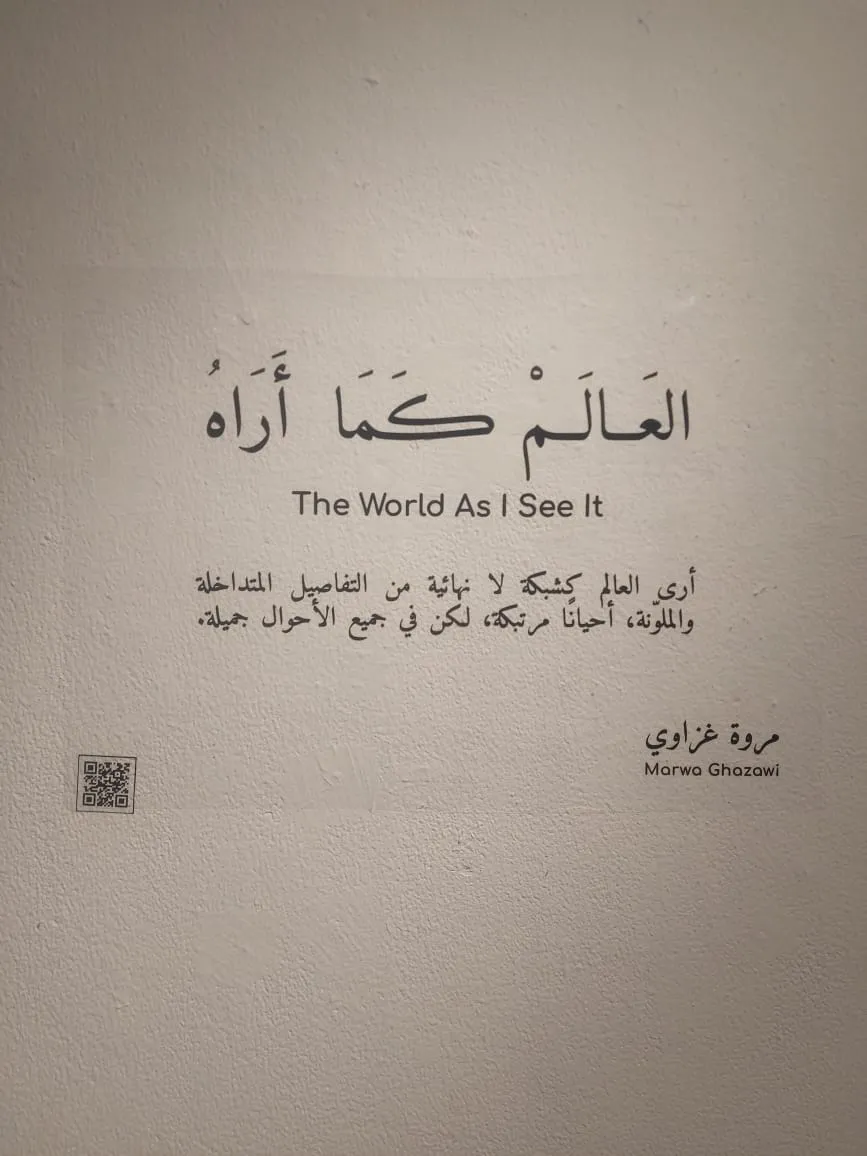 العَالَمْ كَمَا أَرَاهُ
The World As I See It
أرى العالم كشبكة لا نهائية من التفاصيل المتداخلة
والملوّنة، أحيانًا مرتبكة، لكن في جميع الأحوال جميلة.
مروة غزاوي
Marwa Ghazawi